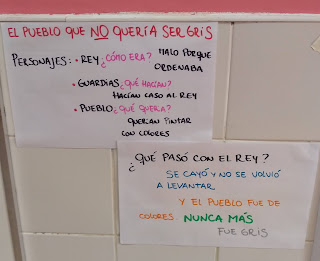 EL PUEBLO QUE NO QUERÍA SER GRIS
PERSONAJES: • REY ¿CÓMO ERA? MALO PORQUE
ORDENABA
• GUARDIAS ¿QUÉ HACÍAN?
HACÍAN CASO AL REY
• PUEBLO ¿QUÉ QUERÍA?
QUERÍAN PINTAR
CON COLORES
¿QUÉ PASÓ CON EL REY?
SE CAYÓ Y NO SE VOLVIÓ
A LEVANTAR
Y EL PUEBLO FUE DE
COLORES. NUNCA MÁS
FUE GRIS